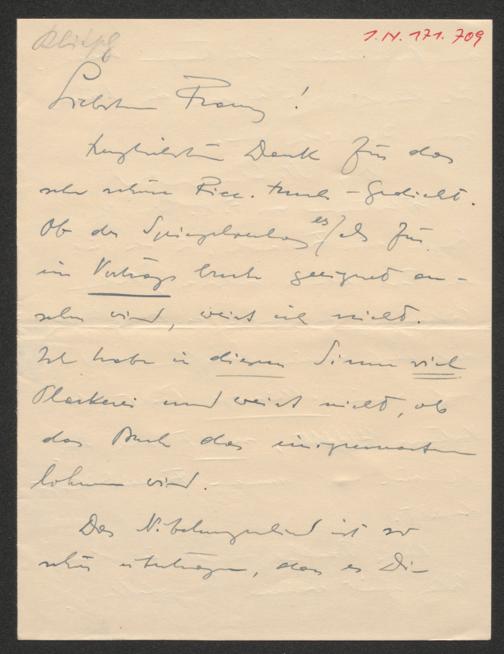 I.N. 171.709
Liebster Franz!
Herzlichsten Dank für das
sehr schöne Ricc. Huch-Gedicht.
Ob der Spiegelverlag es als für
ein Vortragsbuch geeignet an-
sehen wird, weiß ich nicht.
Ich habe in diesem Sinne viel
Plackerei und weiß nicht, ob
das Buch das einigermassen
lohnen wird.
Das Nibelungenlied ist so
schön übertragen, dass es Di-